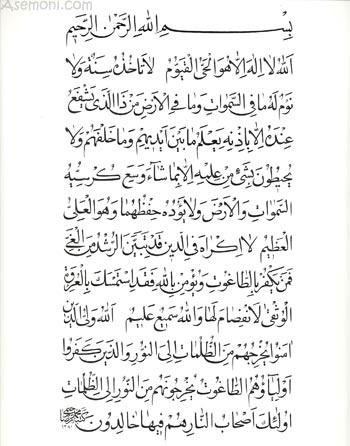 Asemoni.com
بِسْمِ اللهِ الرَّحْمٰنِ الرَّحیمِ
اَللهُ لا اِلٰهَ اِلّا هُوَ الْحَیُّ الْقَیُّومُ لا تَأْخُذُهُ سِنَةٌ وَلا
نَوْمٌ لَهُ مٰا فِی السَّمٰوٰاتِ وَمٰا فِی الْاَرْضِ مَنْ ذَا الَّذی یَشْفَعُ
عِنْدَهُ اِلّا بِاِذْنِهِ یَعْلَمُ مٰا بَیْنَ اَیْدیهِمْ وَمٰا خَلْفَهُمْ وَلا
یُحیطُونَ بِشَیْءٍ مِنْ عِلْمِهِ اِلّا بِمٰا شٰاءَ وَسِعَ کُرْسِیُّهُ
السَّمٰوٰاتِ وَالْاَرْضَ وَلا یَؤُدُهُ حِفْظُهُمٰا وَهُوَ الْعَلِیُّ
الْعَظیمُ لا اِکْرٰاهَ فِی الدّینِ قَدْ تَبَیَّنَ الرُّشْدُ مِنَ الْغَیِّ
فَمَنْ یَکْفُرْ بِالطّٰاغُوتِ وَیُؤْمِنْ بِاللهِ فَقَدِ اسْتَمْسَکَ بِالْعُرْوَةِ
الْوُثْقیٰ لَا انْفِصٰامَ لَهٰا وَاللهُ سَمیعٌ عَلیمٌ اَللهُ وَلِیُّ الَّذینَ
اٰمَنُوا یُخْرِجُهُمْ مِنَ الظُّلُمٰاتِ اِلَی النُّورِ وَالَّذینَ کَفَرُوا
اَوْلِیٰاؤُهُمُ الطّٰاغُوتُ یُخْرِجُونَهُمْ مِنَ النُّورِ اِلَی الظُّلُمٰاتِ
اُولٰئِکَ اَصْحٰابُ النّٰارِ هُمْ فیهٰا خٰالِدُونَ